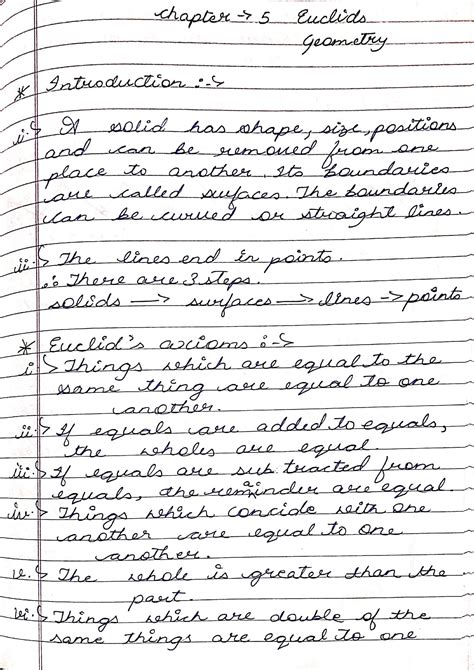 chapter → 5 Euclids
Geometry
* Introduction :->
ii.> A solid has shape, size, positions
and can be removed from one
place to another. Its boundaries
are called surfaces. The boundaries
can be curved or straight lines.
iii.> The lines end in points.
∴ There are 3 steps.
solids → surfaces → lines → points
* Euclid's axioms :->
i.> Things which are equal to the
same thing are equal to one
another.
ii.> If equals are added to equals,
the wholes are equal.
iii.> If equals are subtracted from
equals, the remainder are equal
iv.> Things which concide with one
another are equal to one
another.
v.> The whole is greater than the
part.
vi.> Things which are double of the
same things are equal to one